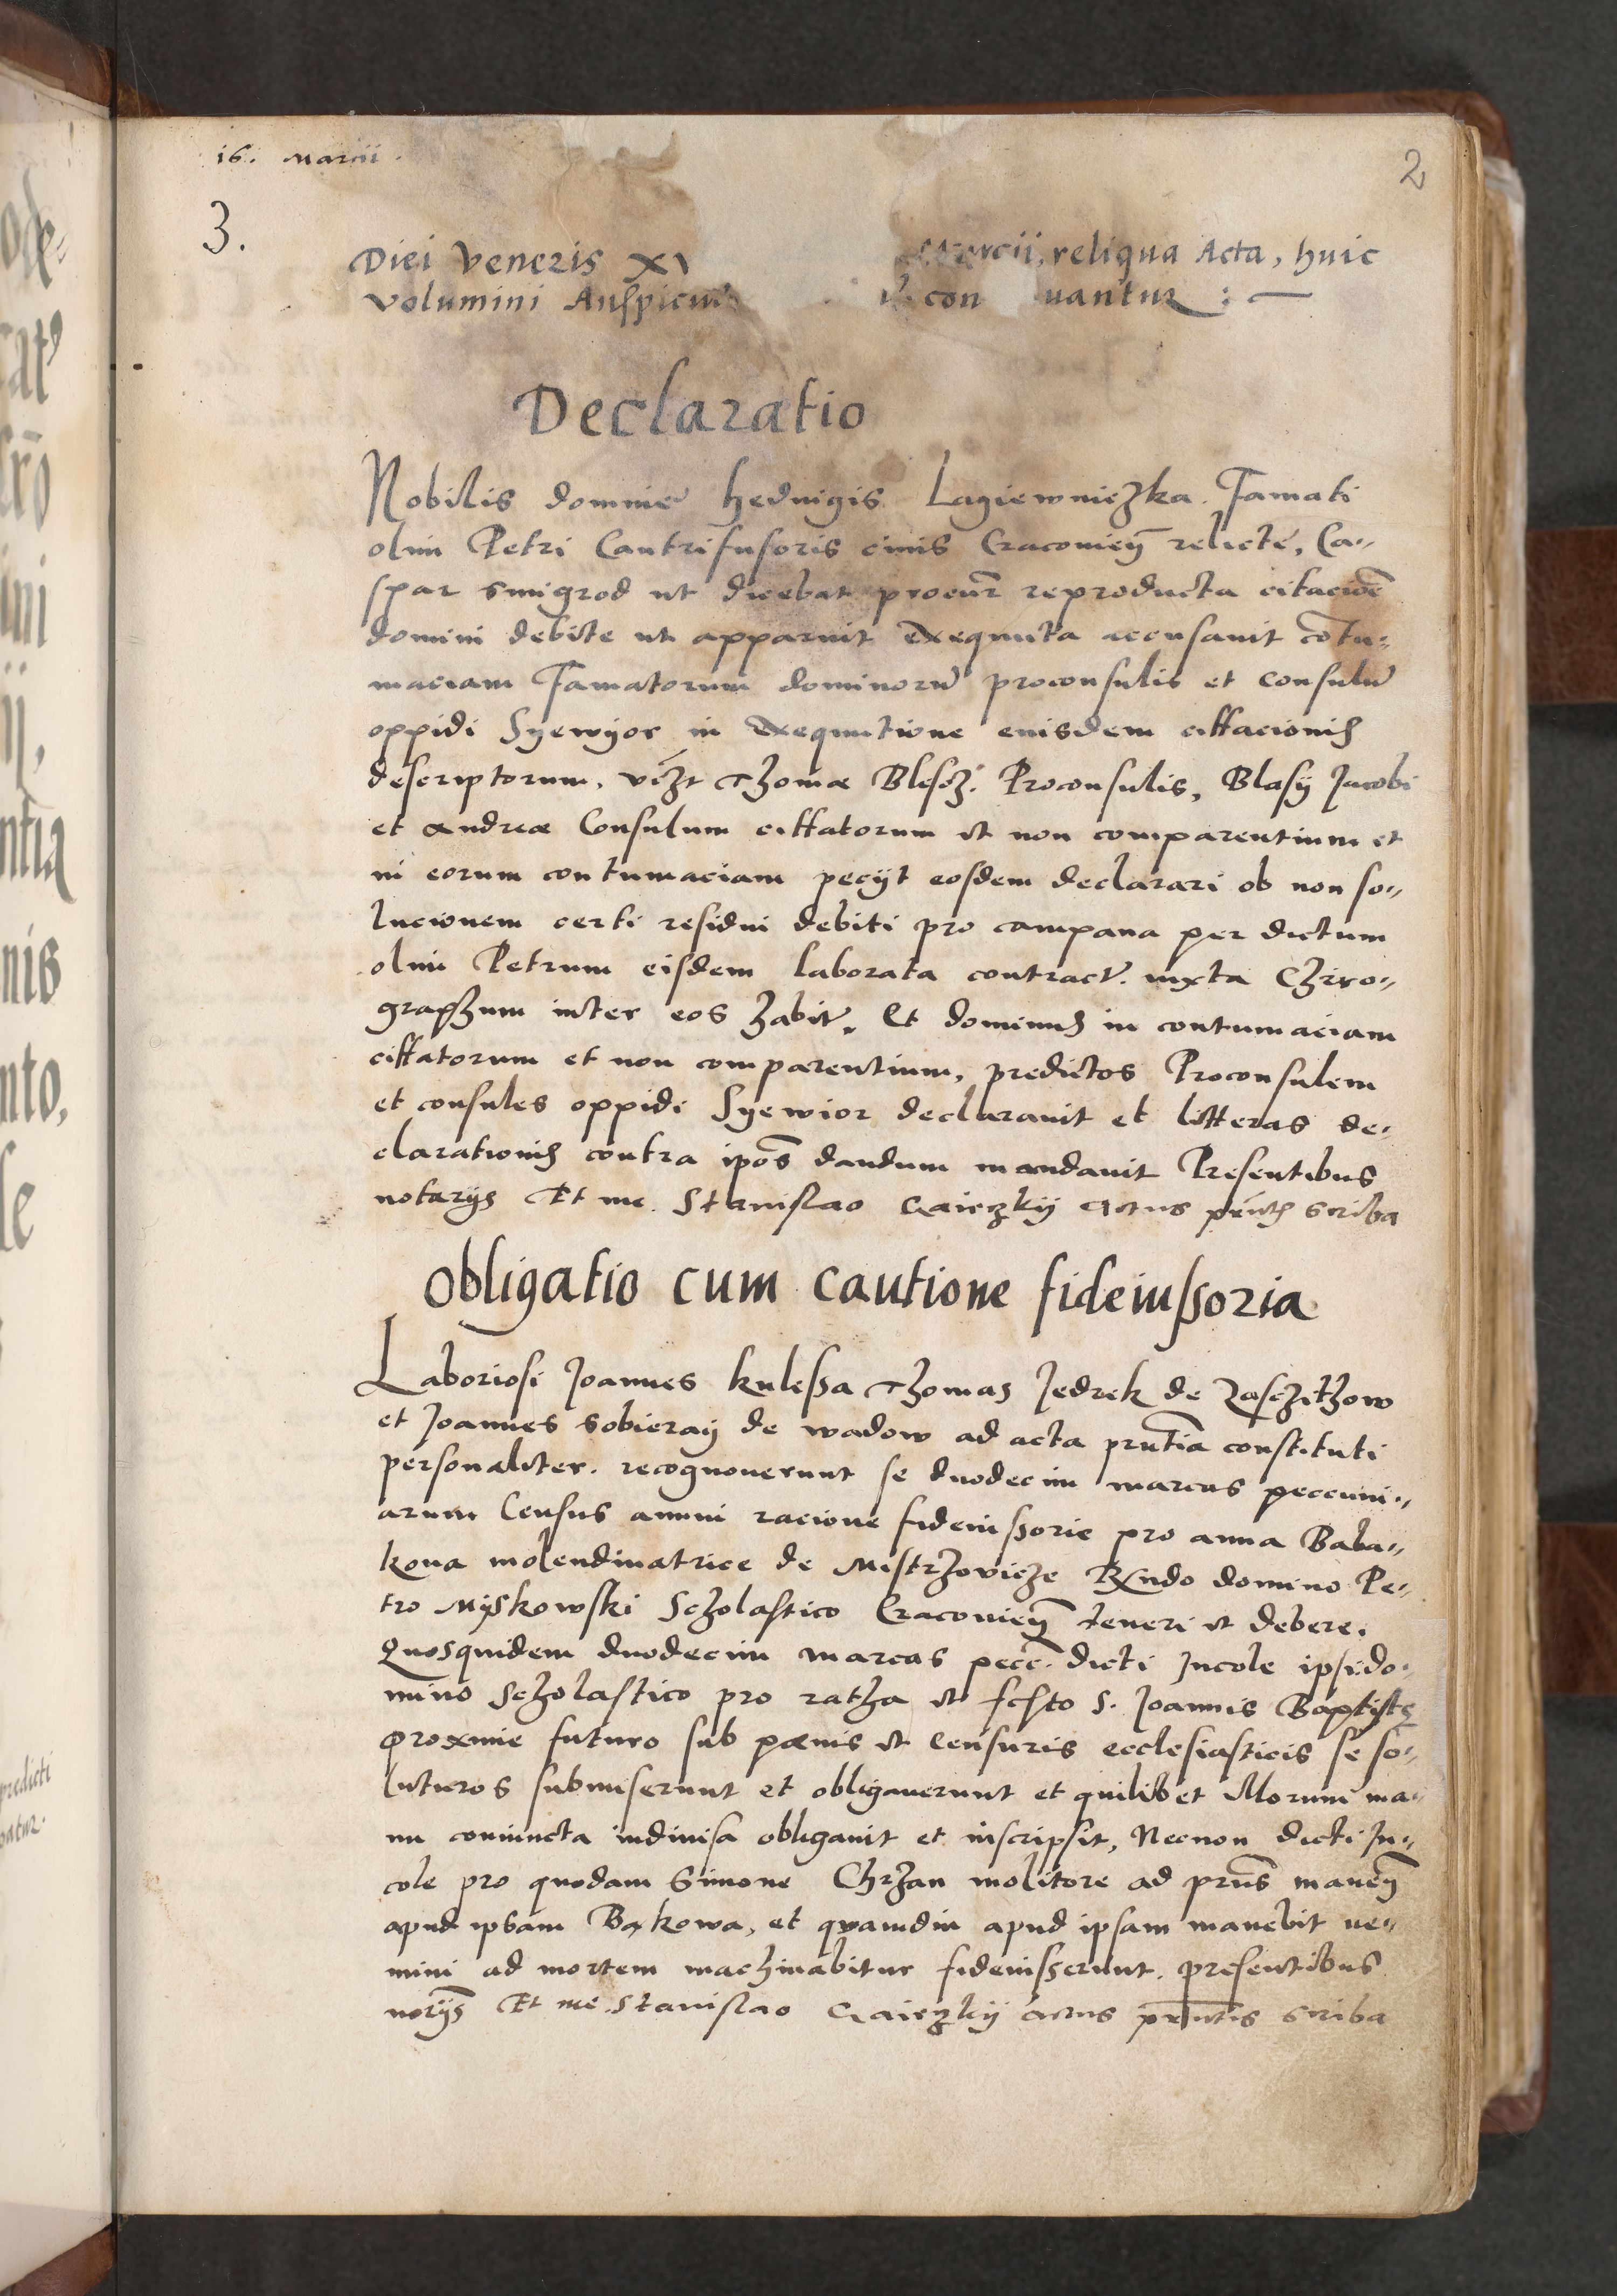 16. Marcii.
2
3.
Diei Veneris XV Marcii, reliqua Acta, huic
Volumini Auspicu con uantur : —
Declaratio
Nobilis domine Heduigis Lagiewniczka. Famati
olim Petri Cantrifusoris ciuis Cracouień relicte, Ca-
spar Smigrod ut dicebat procur reproducta citacioē
domini debite ut apparuit exequuta accusauit cōtu-
maciam Famatorum dominorū proconsulis et consulū
oppidi Syewyor in exequutione euisdem cittacionis
descriptorum, vczt Thomæ Blescz. Proconsulis, Blasÿ Jacobi
et Andreæ Consulum cittatorum et non comparentium et
in eorum contumaciam peciјt eosdem declarari ob non so-
lucionem certi residui debiti pro campana per dictum
olim Petrum eisdem laborata contract. iuxta Chiro-
graphum inter eos habit. Et dominus in contumaciam
cittatorum et non comparentium, predictos Proconsulem
et consules oppidi Syewior declarauit et litteras de-
clarationis contra ipōs dandum mandauit Presentibus
notarÿs Et me Stanislao Gaiczkÿ Actus pēntis scriba
Obligatio cum cautione fideiussoria
Laboriosi Joannes Kulessa Thomas Jedrek de Zasczithow
et Joannes Sobieraÿ de Wadow ad acta prntia constituti
personaliter. recognouerunt se duodecim marcas peccuni-
arum Census annui racione fideiussorie pro anna Baba-
koua molendinatrice de Mistrzowicze Rxndo domino Pe-
tro Myskowski Scholastico Cracouień teneri et debere.
Quosquidem duodecim marcas pecc. dicti Jncole ipsi do-
mino Scholastico pro ratha et festo S. Joannis Baptistę
proxime futuro sub pænis et censuris ecclesiasticis se so-
luturos submiserunt et obligauerunt et quilibet illorum ma-
nu coniuncta indiuisa obligauit et inscripsit, Necnon dicti Jn-
cole pro quodam Simone Chrzan molitore ad prns maneñ
apud ipsam Bąkowa, et quamdiu apud ipsam manebit ne-
mini ad mortem machinabitur fideiusserunt. presentibus
norÿs Et me. Stanislao Gaiczkÿ actus prntis scriba